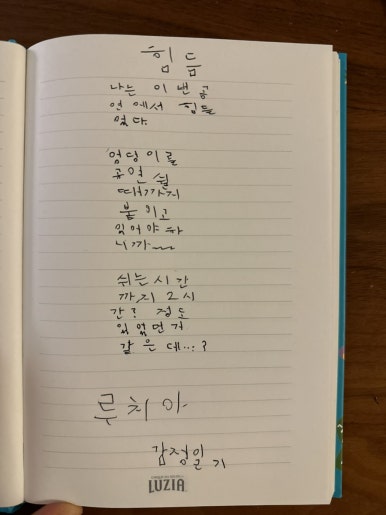 힘듬
나는 이번 공
연에서 힘들
었다.
엉덩이를
공연 쉴
때까지
붙이고
있어야 하
니까~
쉬는시간
까지 2시
간? 정도
있었던거
같은데...?
루치아
감정일기
LUZIA